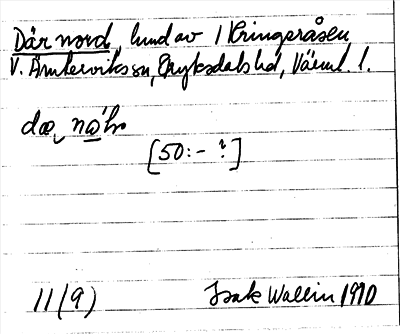 Där nord, lund av 1 Kringeråsen
V. Ämterviks sn, Fryksdals hd, Värml. l.
dæ, nɷ̀ḷn
[50:- ?]
11(9) Isak Wallin 1910